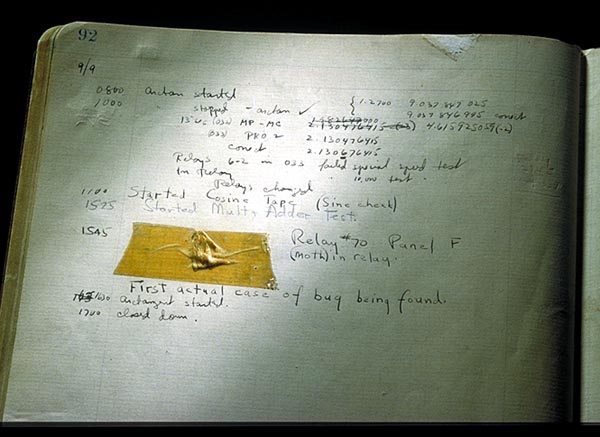 92
9/9
0800 Antan started
1000 " stopped - antan ✓ { 1.2700 9.037 847 025
9.037 846 995 correct
13"uc (032) MP-MC 2.130476415 (-3) 4.615925059(-2)
(033) PRO 2 2.130476415
correct 2.130676415
Relays 6-2 in 033 failed special speed test
in Relay " 10,000 test "
Relays changed
1100 Started Cosine Tape (Sine check)
1525 Started Mult + Adder Test.
1545 Relay #70 Panel F
(moth) in relay.
First actual case of bug being found.
1630 antangent started.
1700 closed down.